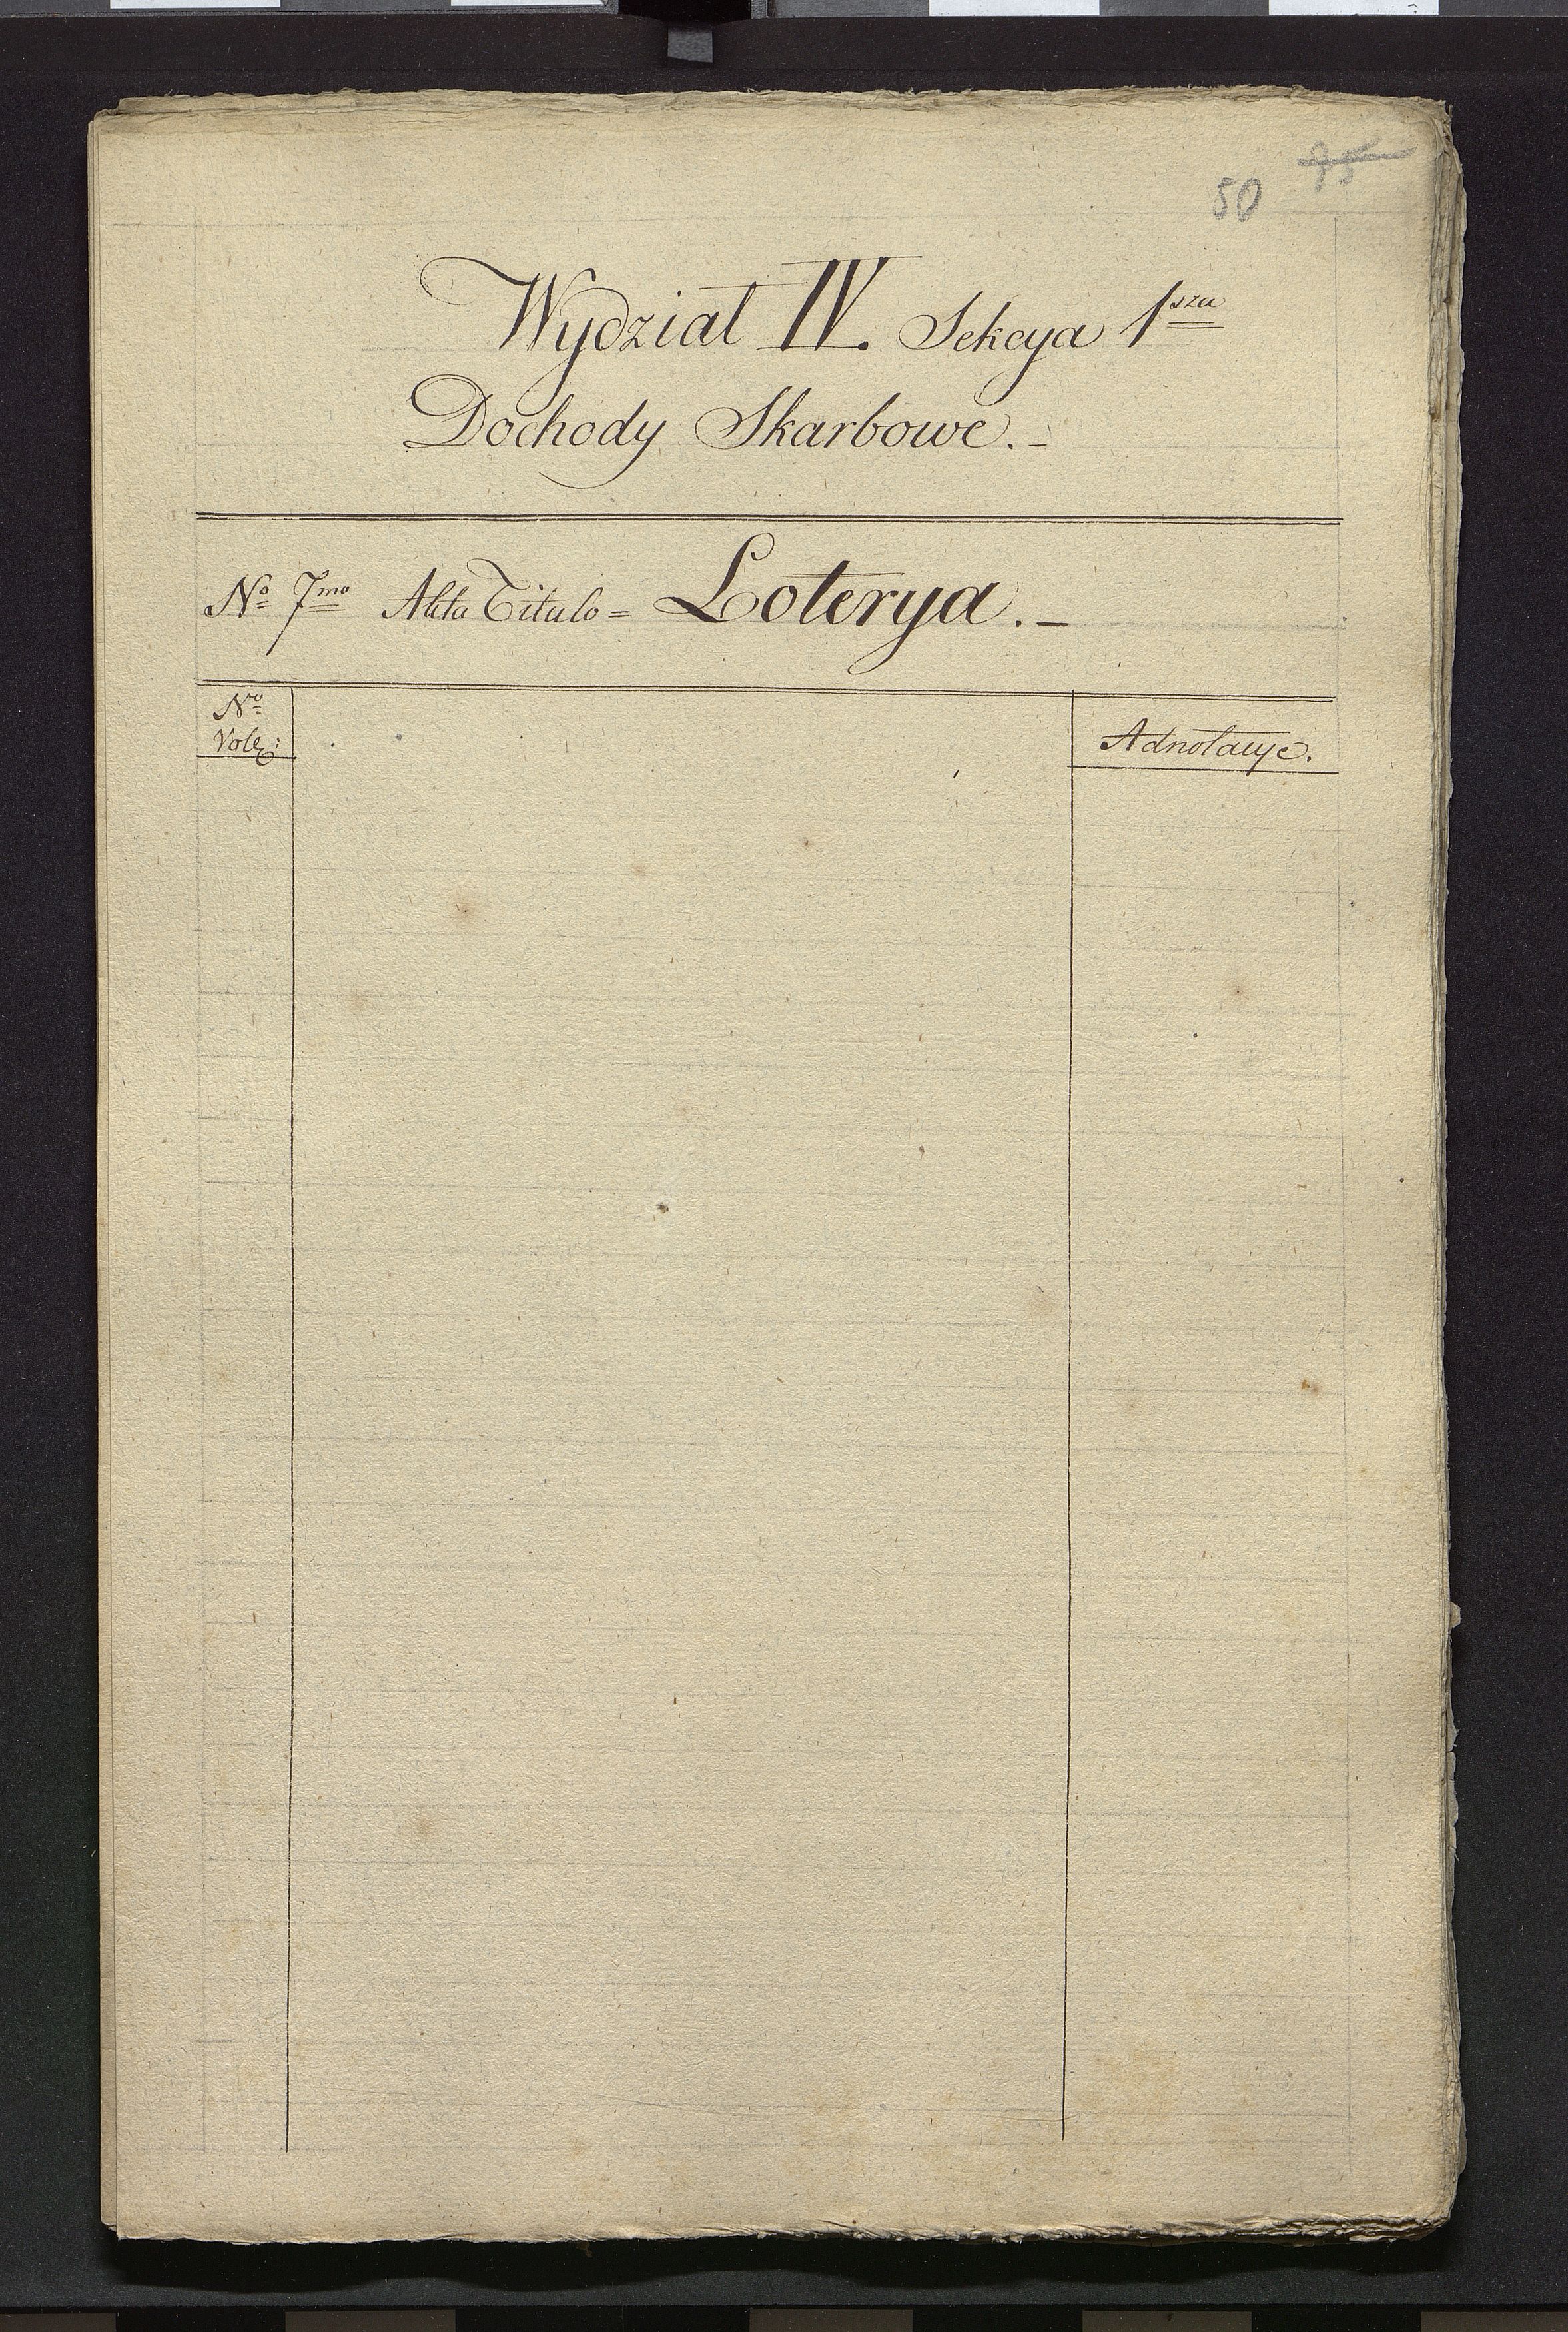 75
50
Wydział IV. Sekcya 1sza
Dochody Skarbowe.-
No 7mo Akta Titulo = Loterya.-
No
Vol:
Adnotacye.